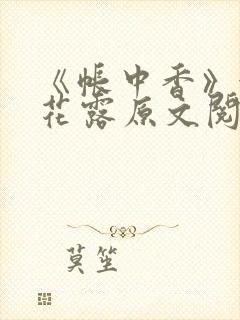 《帐中香》
花露原文阅
莫笙